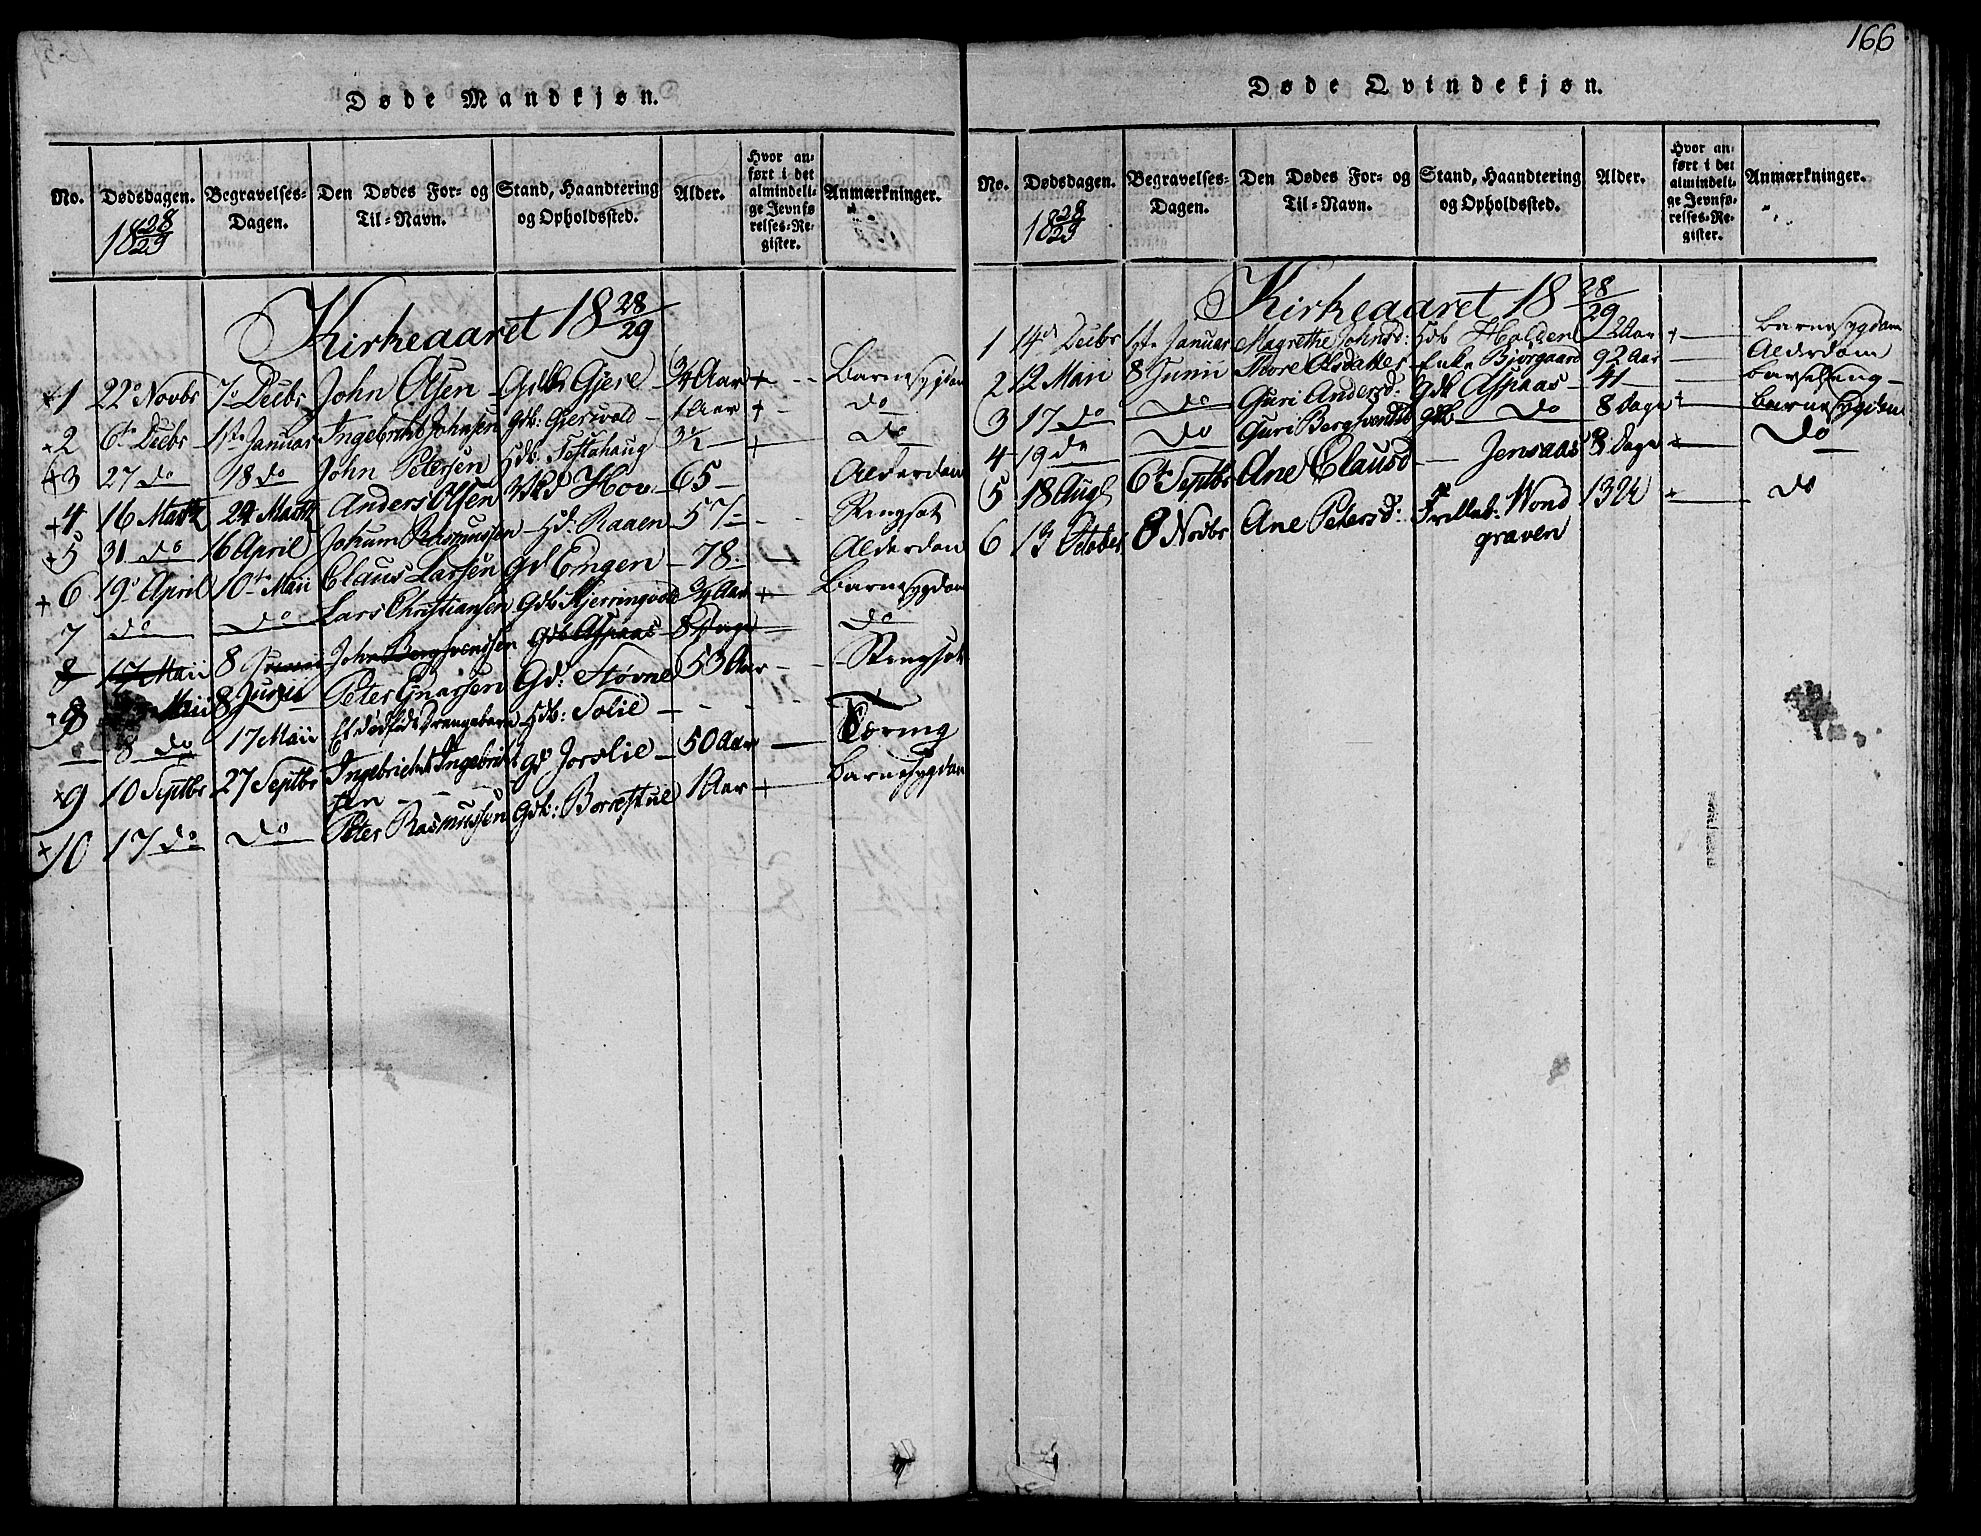 166
Døde Mandkjøn.
No. Dødsdagen. Begravelses-Dagen. Den Dødes For- og Til-Navn. Stand, Haandtering og Opholdssted. Alder. Hvor anført i det almindelige Jevnførelses-Register. Anmærkninger.
18 28/29
Kirkeaaret 18 28/29
+1 22 Novbr 7 Decbr John Olsen Gdb Gjere 3/4 Aar + Barnesygdom
+2 6te Decbr 1ste Januar Ingebrigt Johnsen Gdb: Gjersvold 1 Aar + do
+3 27 do 18 do John Petersen Hdb. Testahaug 3 1/2 + do
+4 16 Marts 24 Marts Anders Olsen Hov 65 Alderdom
+5 31 do 16 April Johum Rasmussen Hd: Raaen 57
+6 19 April 10de Maii Claus Larsen Gd Engen 78 Alderdom
7 do do Lars Christiansen Gdb Kjerringvold 3/4 Aar + Barnesygdom
8 17 Maii 8 John Bergsvendsen Gdb Aspaas 8 Dage do
+8 Maii 8 Junii Peter Einarsen Gd: Støvne 53 Aar
8 do 17 Maii Et dødfødt Drengebarn Hdb: Solie
+9 10 Septbr 27 Septbr Ingebrigt Ingebrigtsen Gd Jorslie 50 Aar Tæring
+10 17 do do Peter Rasmussen Gdb: Borrestue 1 Aar + Barnesygdom
Døde Qvindekjøn.
No. Dødsdagen. Begravelses-Dagen. Den Dødes For- og Til-Navn. Stand, Haandtering og Opholdssted. Alder. Hvor anført i det almindelige Jevnførelses-Register. Anmærkninger.
18 28/29
Kirkeaaret 18 28/29
1 14d Decbr 1ste Januar Magrethe Johnsd: Hdb Holden Aar + Barnesygdom
2 12 Maii 8 Junii Olsdatter Enke Bjørgaard 92 Aar Alderdom
3 17 do do Guri Andersd: Gdk Aspaas 41 Barselseng
4 19 do do Guri Bergsvendsd gdb do 8 Dage + Barnesygdom
5 18 Aug 6te Septbr Ane Clausd Jensaas 8 Dage + do
6 13 October 8 Novbr Ane Petersd: Frilleb: Wondgraven 13 + do